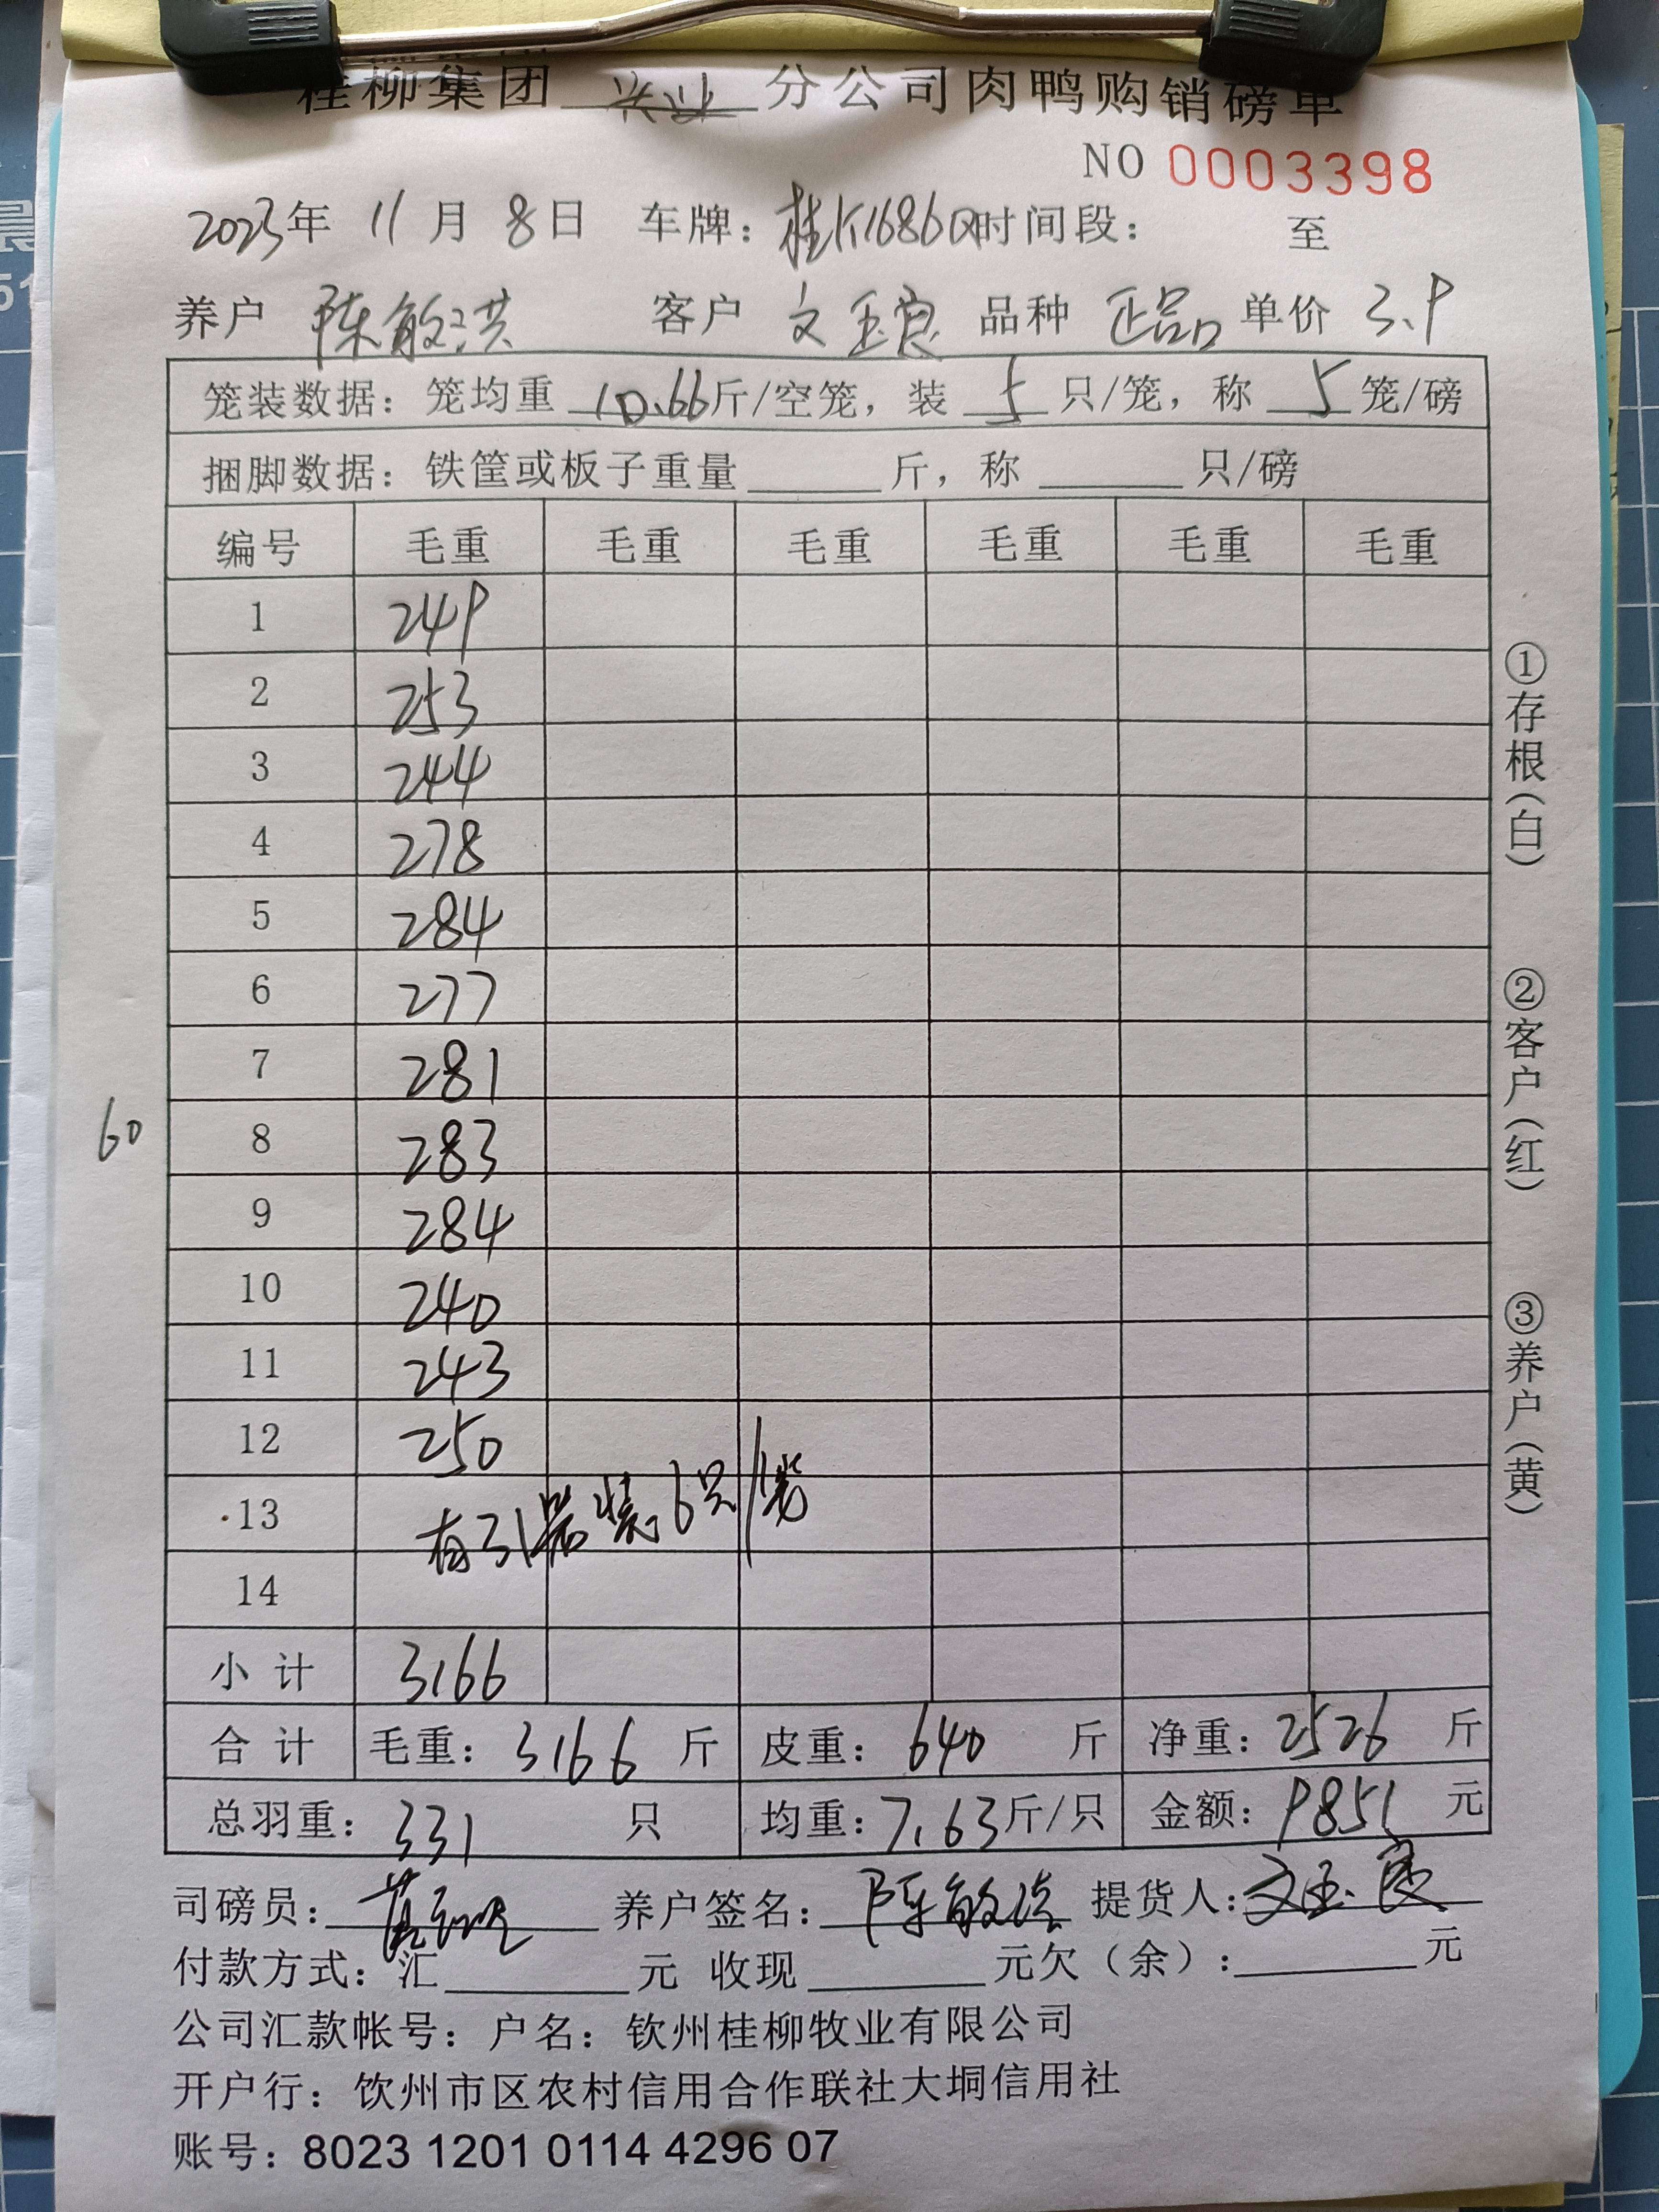 桂柳集团 兴业 分公司肉鸭购销磅单
NO 0003398
2023年 11月 8日 车牌：桂K1686Q 时间段： 至
养户 陈敏洪 客户 文玉良 品种 正品 单价 3.9
笼装数据：笼均重 10.66斤/空笼，装 5 只/笼，称 5 笼/磅
捆脚数据：铁筐或板子重量 斤，称 只/磅
编号 毛重 毛重 毛重 毛重 毛重 毛重
1 249
2 253
3 244
4 278
5 284
6 277
7 281
8 283
9 284
10 240
11 243
12 250
13
有31笼装6只/笼
14
60
小计 3166
合计 毛重：3166 斤 皮重：640 斤 净重：2526 斤
总羽重：331 只 均重：7.63斤/只 金额：9851 元
司磅员： 养户签名：陈敏洪 提货人：文玉良
付款方式：汇 元 收现 元欠（余）： 元
公司汇款帐号：户名：钦州桂柳牧业有限公司
开户行：钦州市区农村信用合作联社大垌信用社
账号：8023 1201 0114 4296 07
①存根（白）
②客户（红）
③养户（黄）